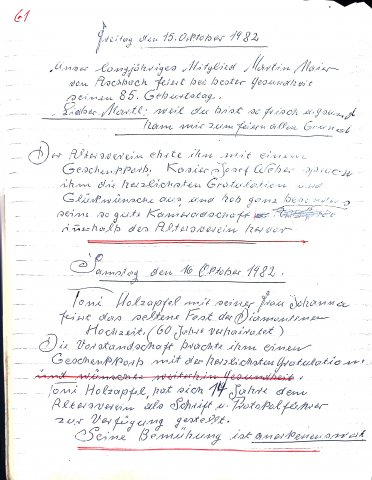 61
Freitag den 15. Oktober 1982
Unser langjähriges Mitglied Martin Maier
von Aschbach feiert bei bester Gesundheit
seinen 85. Geburtstag.
Lieber Martl: weil du bist so frisch u. gsund
ham mir zum feiern allen Grund
Der Altersverein ehrte ihn mit einem
Geschenkkorb, Kasier Josef Weber sprach
ihm die herzlichsten Gratulation und
Glückwünsche aus und hob ganz besonders
seine so gute Kameradschaft
inerhalb des Altersverein hervor
Samstag den 16 Oktober 1982.
Toni Holzapfel mit seiner Frau Johanna
feiert das seltene Fest der Diamantenen
Hochzeit. (60 Jahre verhairatet)
Die Vorstandschaft brachte ihm einen
Geschenkkorb mit der herzlichsten Gratulation
und wünschte weiterhin Gesundheit.
Toni Holzapfel, hat sich 14 Jahre dem
Altersverein als Schrift u. Protokolführer
zur Verfügung gestellt.
Seine Bemühung ist anerkennenswert